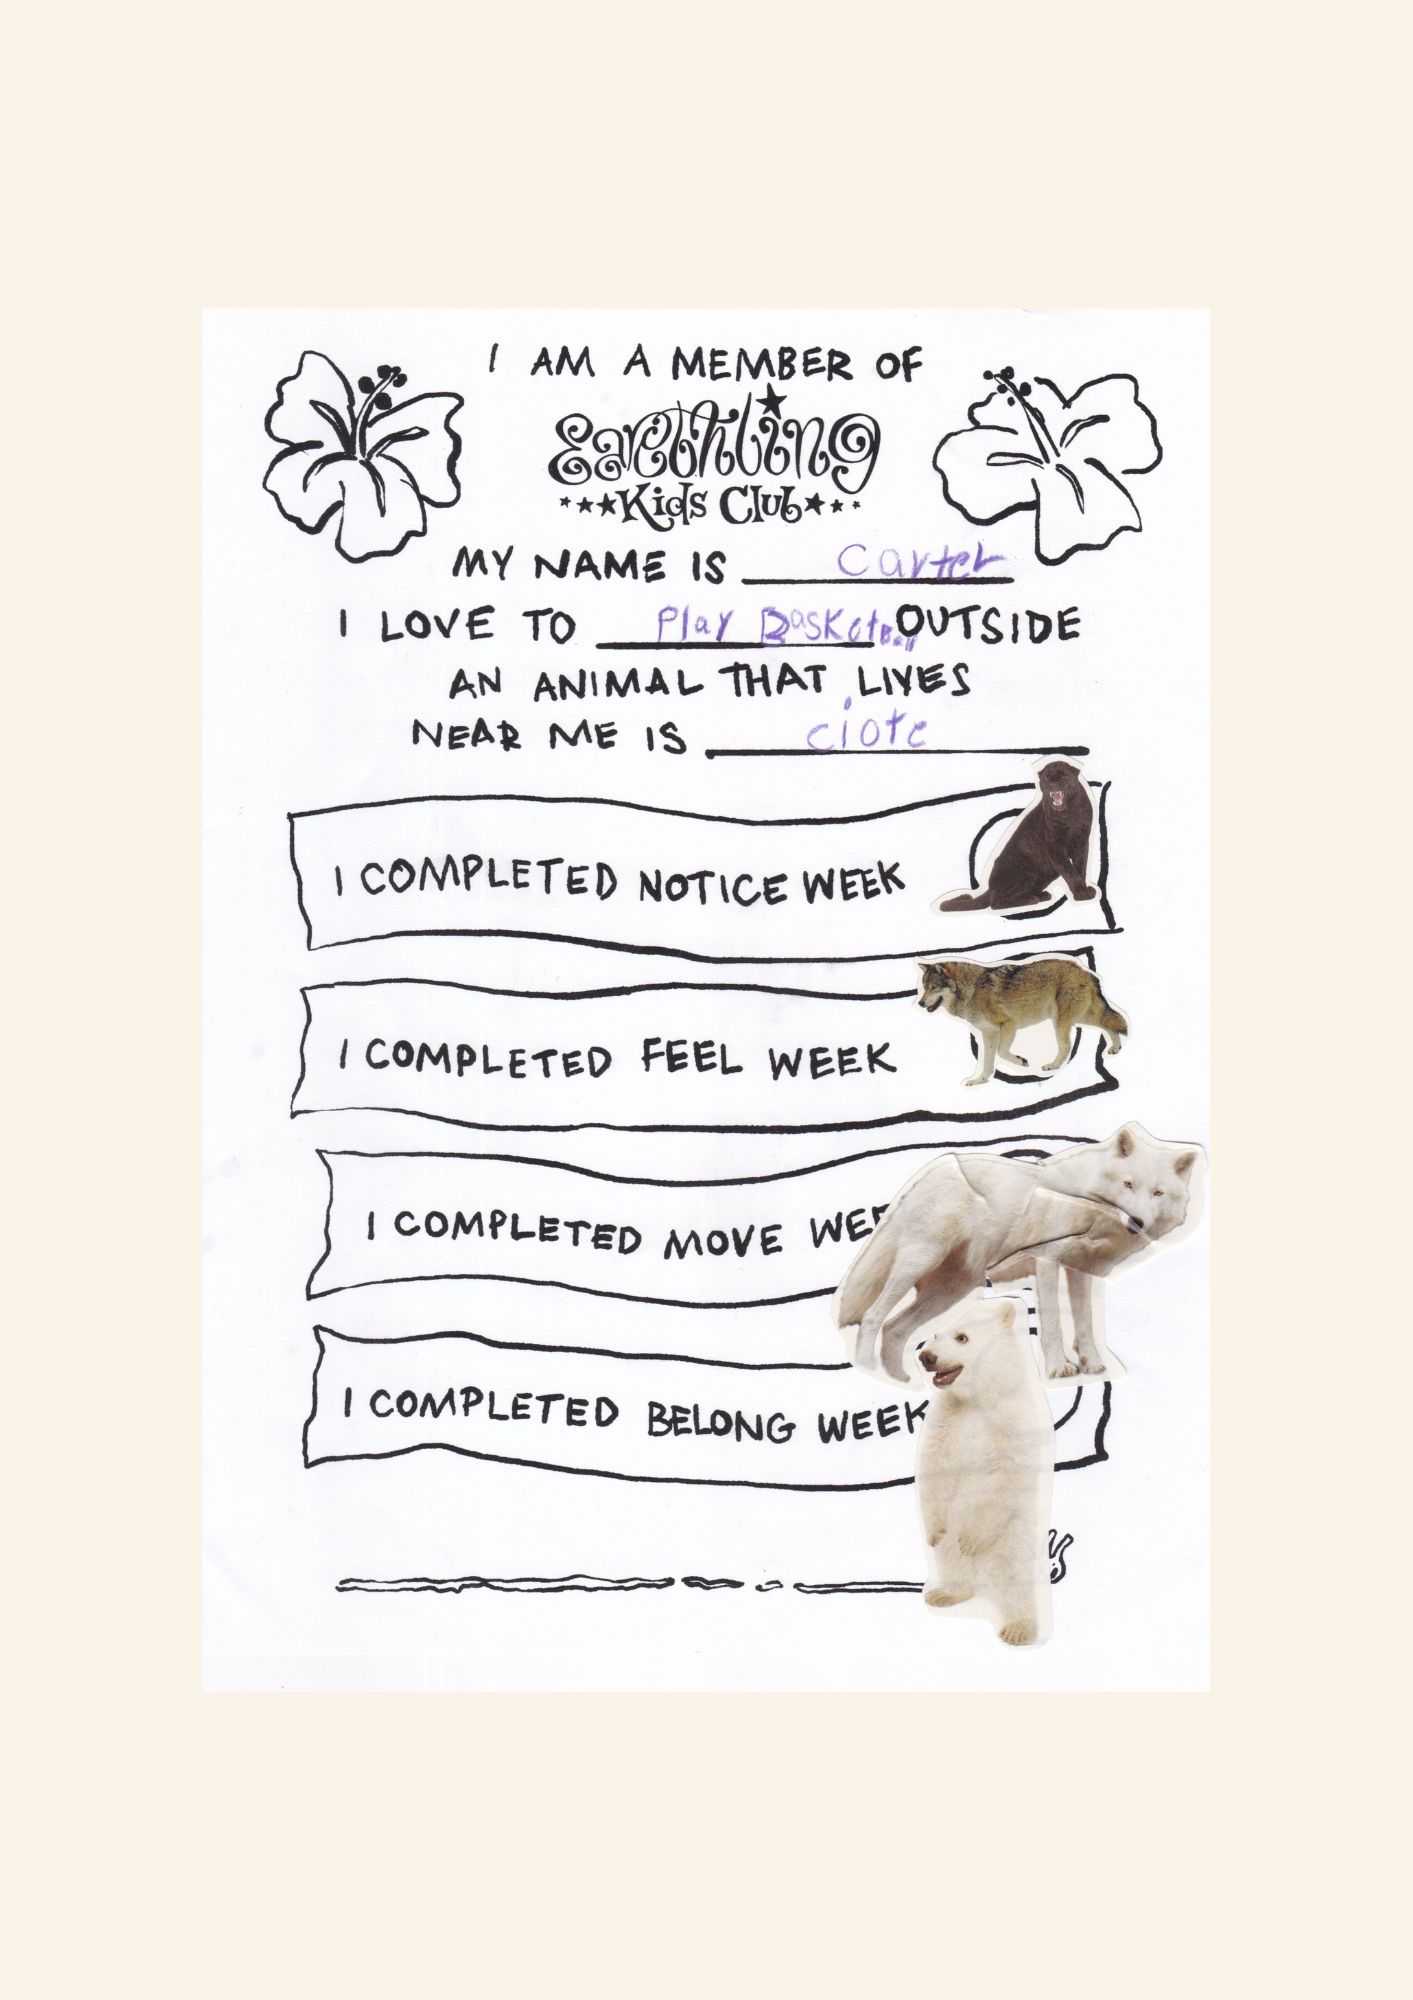 I AM A MEMBER OF
Earthling
Kids Club
MY NAME IS Carter
I LOVE TO Play Basketball OUTSIDE
AN ANIMAL THAT LIVES
NEAR ME IS ciote
I COMPLETED NOTICE WEEK
I COMPLETED FEEL WEEK
I COMPLETED MOVE WEE
I COMPLETED BELONG WEEK